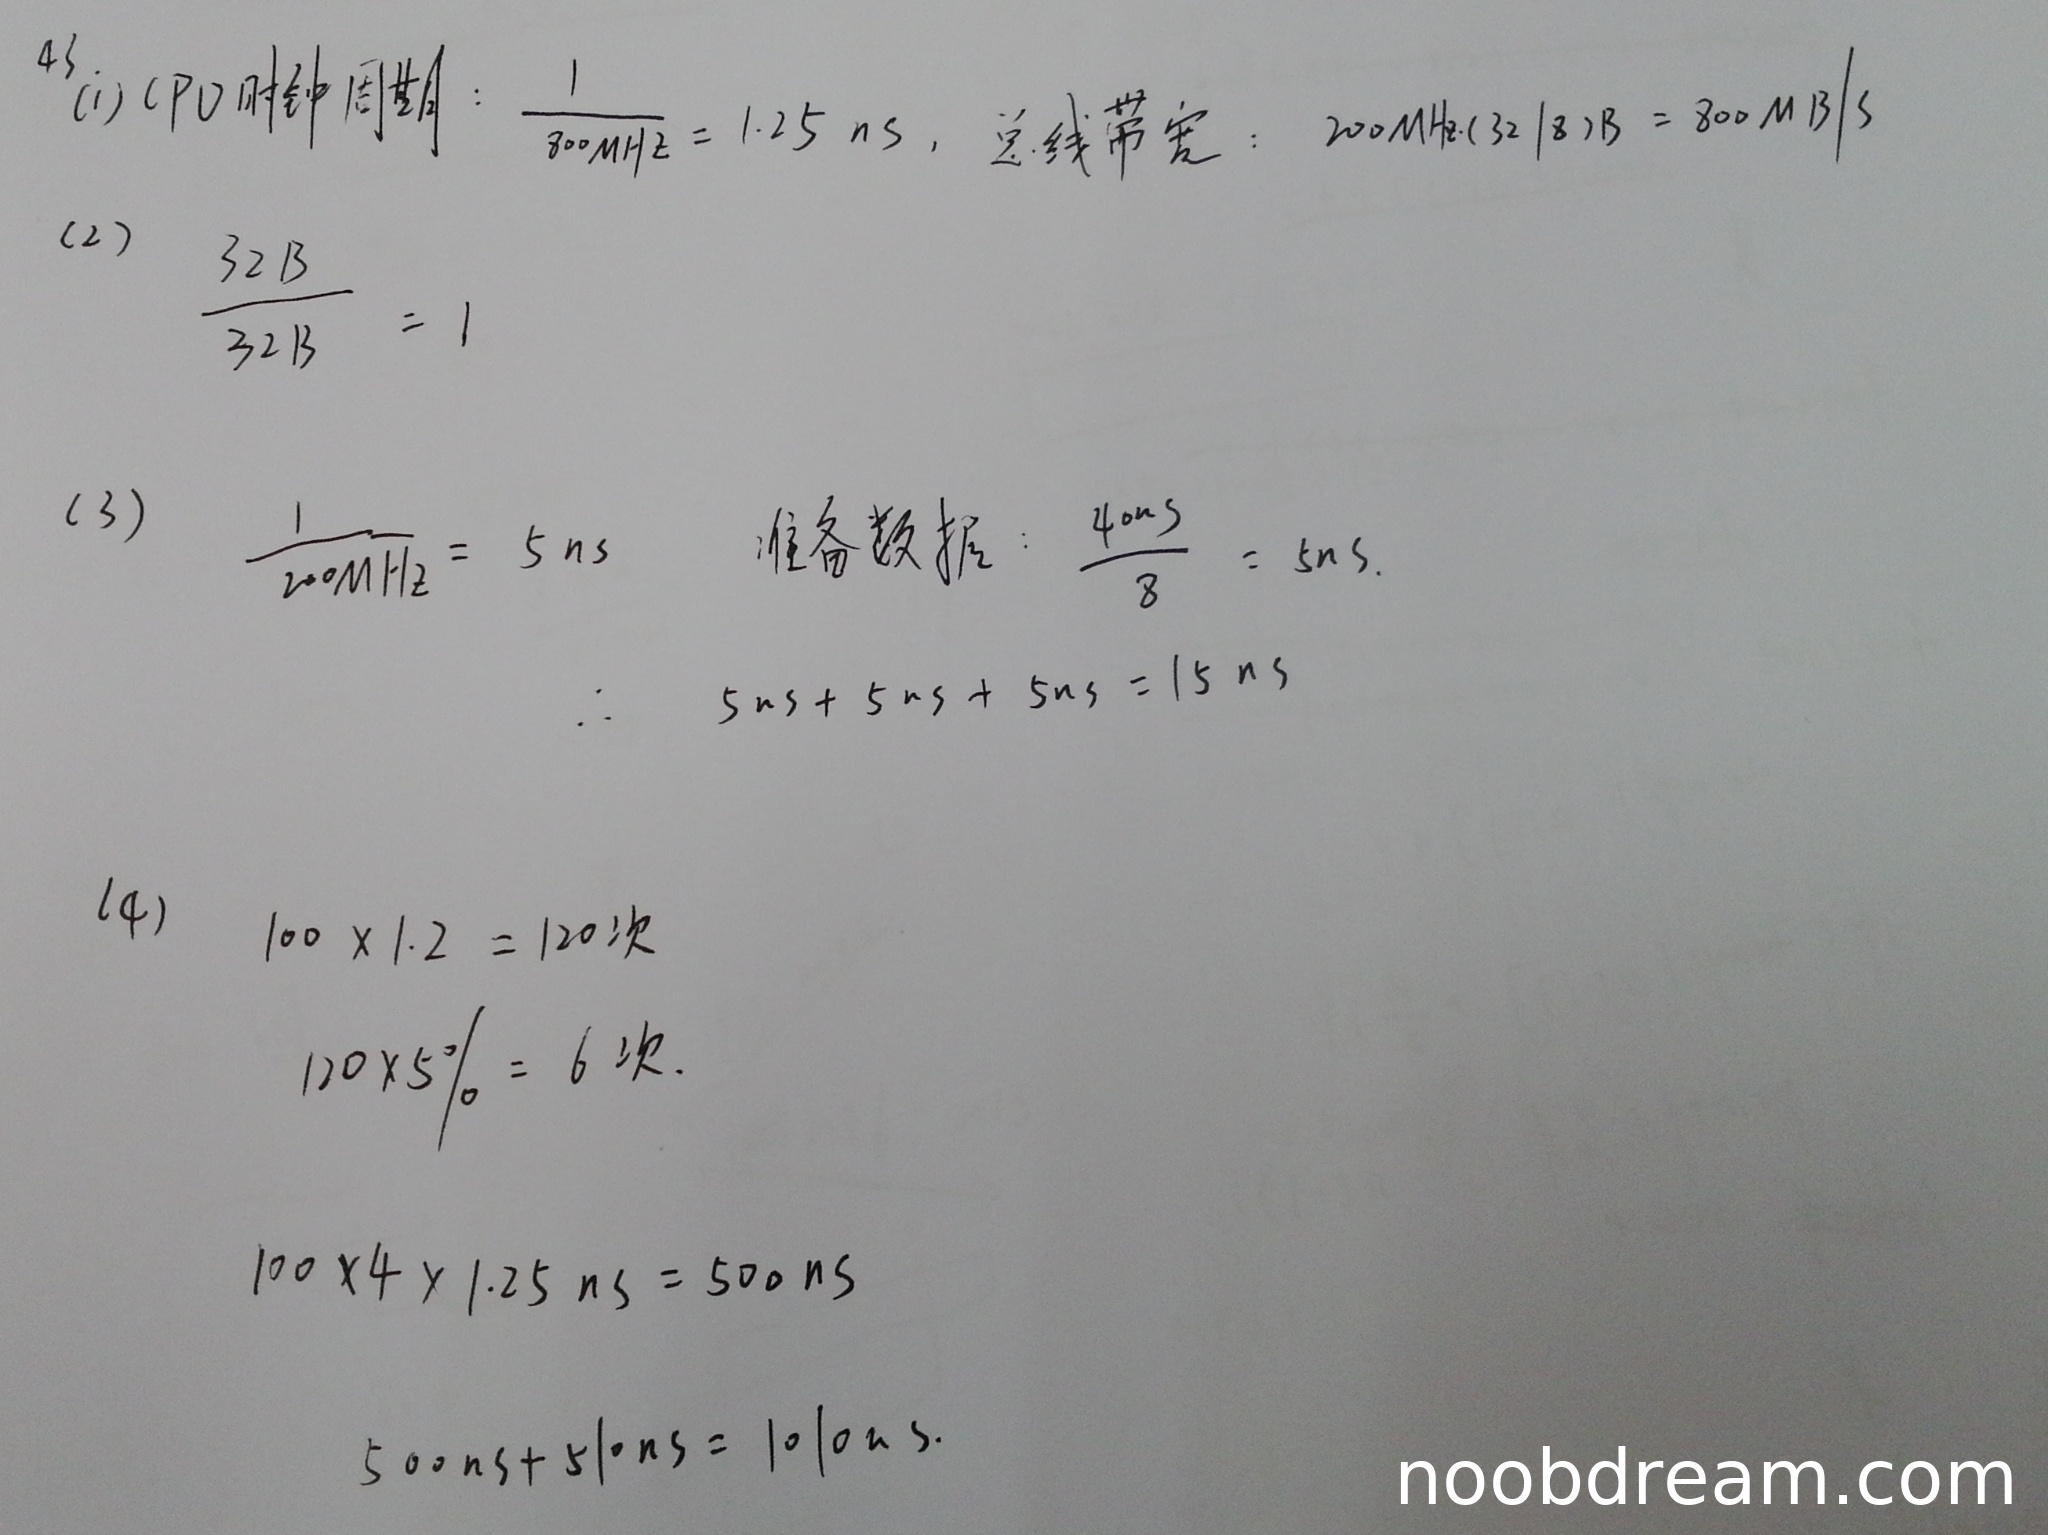 43
(1) CPU时钟周期: 1/800MHz = 1.25 ns, 总线带宽: 200MHz·(32/8)B = 800MB/s
(2) 32B/32B = 1
(3) 1/200MHz = 5ns 准备数据: 40ns/8 = 5ns.
∴ 5ns + 5ns + 5ns = 15ns
(4) 100 × 1.2 = 120次
120×5% = 6次.
100×4×1.25ns = 500ns
500ns + 510ns = 1010ns.
noobdream.com